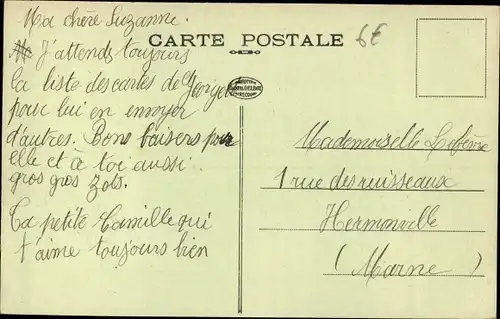 Ma chère Suzanne.
CARTE POSTALE
6€
J'attends toujours
la liste des cartes de
pour lui en envoyer
d'autres. Bons baisers pour
elle et à toi aussi
gros gros
Ta petite Camille qui
t'aime toujours bien
Mademoiselle Lefèvre
1 rue des ruisseaux
Hermonville
(Marne)